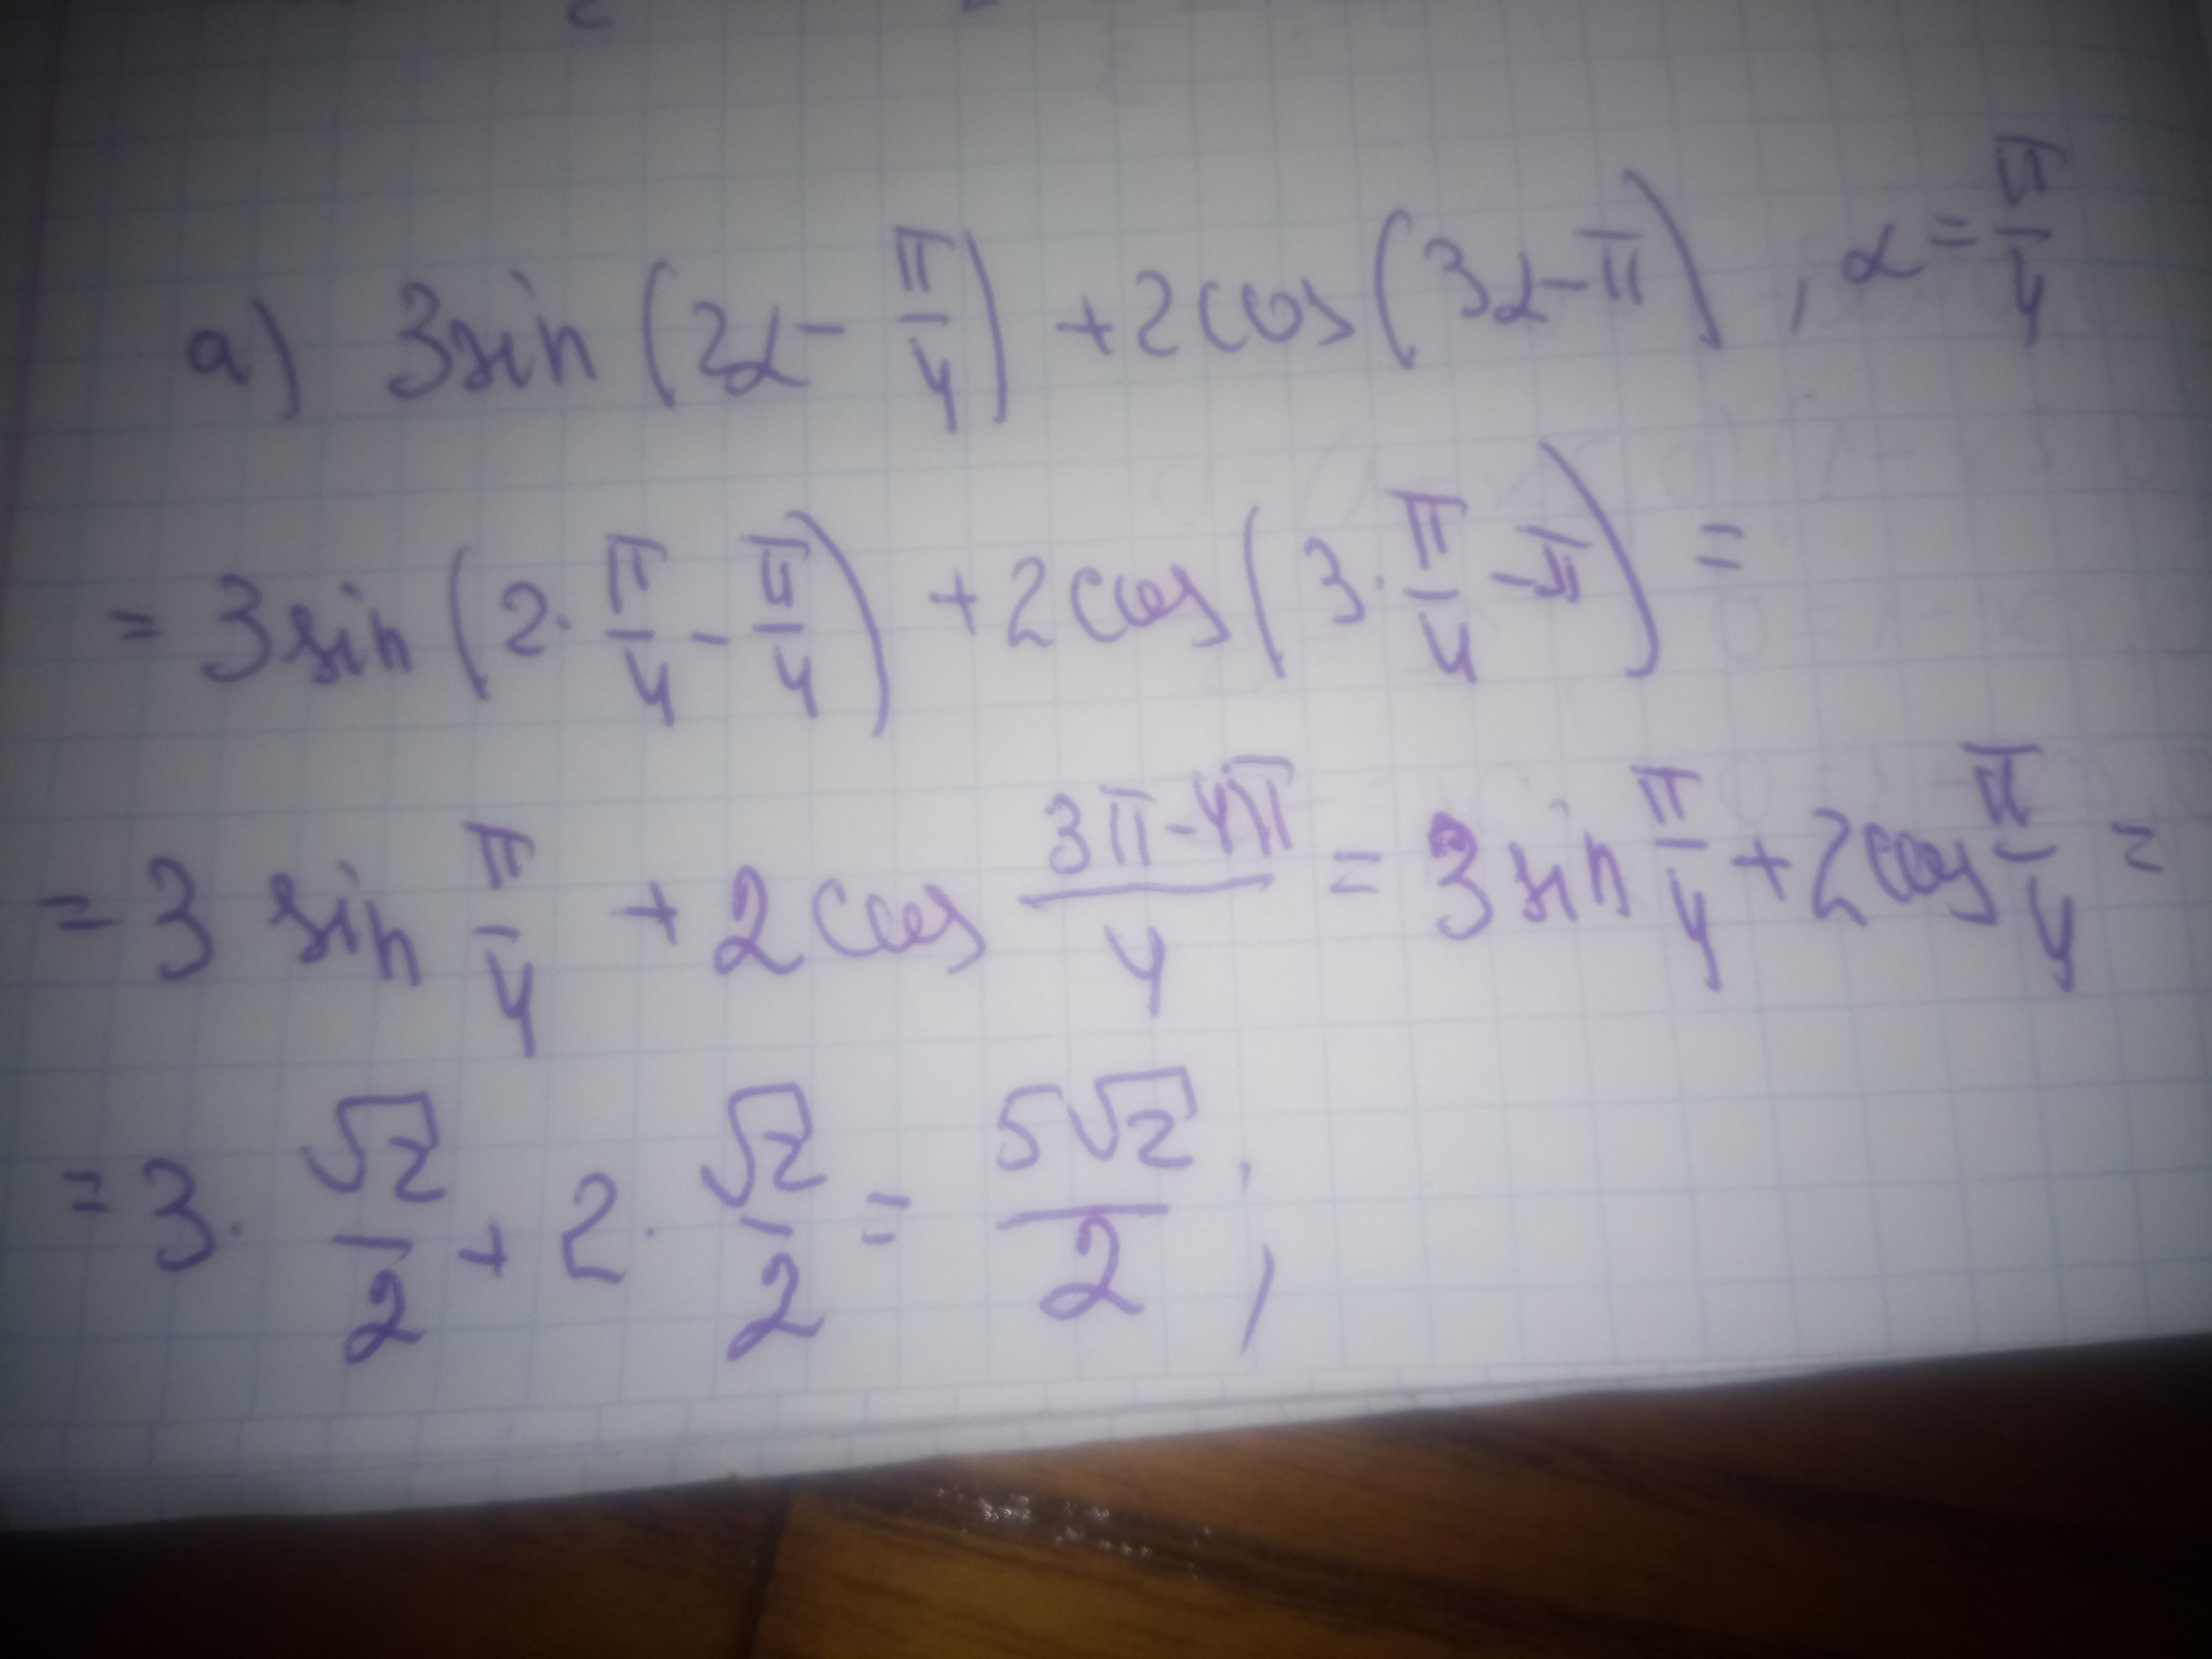 a) 3sin(2α - π/4) + 2cos(3α - π), α = π/4
= 3sin(2·π/4 - π/4) + 2cos(3·π/4 - π) =
= 3 sin π/4 + 2cos (3π-4π)/4 = 3 sin π/4 + 2cos π/4 =
= 3·√2/2 + 2·√2/2 = 5√2/2;